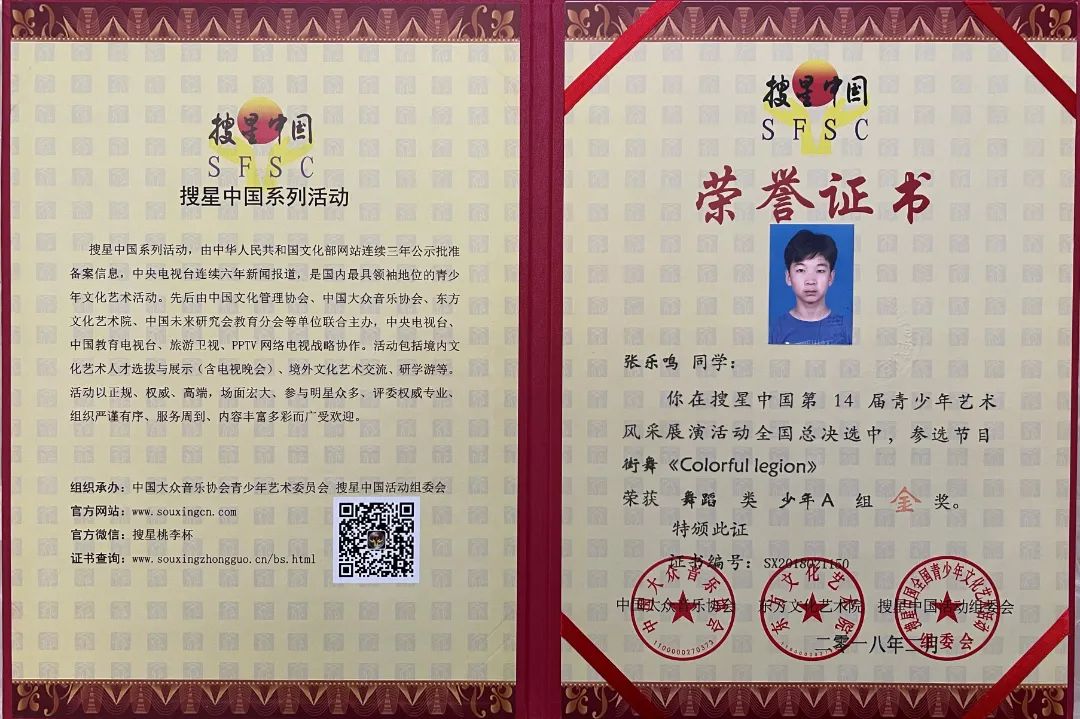 搜星中国
SFSC
搜星中国系列活动
搜星中国系列活动，由中华人民共和国文化部网站连续三年公示批准
备案信息，中央电视台连续六年新闻报道，是国内最具领袖地位的青少
年文化艺术活动。先后由中国文化管理协会、中国大众音乐协会、东方
文化艺术院、中国未来研究会教育分会等单位联合主办，中央电视台、
中国教育电视台、旅游卫视、PPTV网络电视战略协作。活动包括境内文
化艺术人才选拔与展示（含电视晚会）、境外文化艺术交流、研学游等。
活动以正规、权威、高端，场面宏大、参与明星众多、评委权威专业、
组织严谨有序、服务周到、内容丰富多彩而广受欢迎。
组织承办：中国大众音乐协会青少年艺术委员会 搜星中国活动组委会
官方网站：www.souxingcn.com
官方微信：搜星桃李杯
证书查询：www.souxingzhongguo.cn/bs.html
搜星中国
SFSC
荣誉证书
张乐鸣 同学：
你在搜星中国第14届青少年艺术
风采展演活动全国总决选中，参选节目
街舞《Colorful legion》
荣获 舞蹈 类 少年A 组 金 奖。
特颁此证
证书编号：SX2018021150
中国大众音乐协会 东方文化艺术院 搜星中国活动组委会
二零一八年二月
中国大众音乐协会
1100000270373
东方文化艺术院
搜星中国全国青少年文化艺术活动
组委会